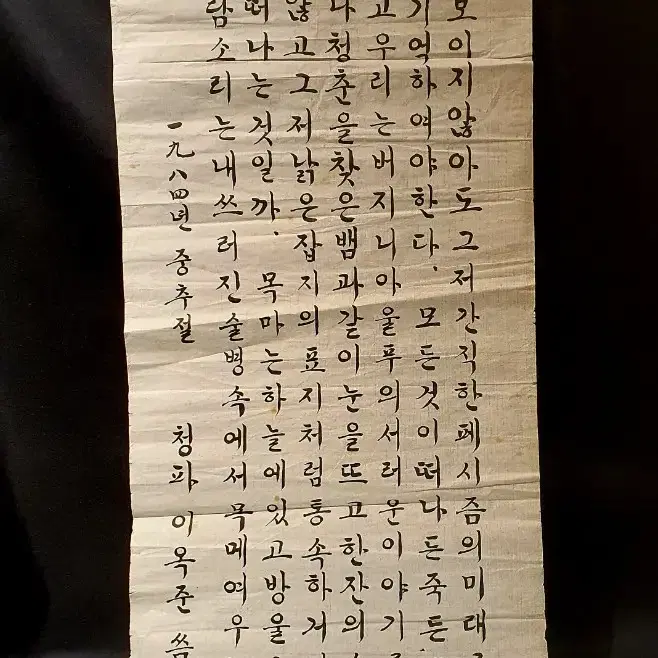 보이지않아도그저간직한페시즘의미래
기억하여야한다. 모든것이떠나든죽든
고우리는버지니아울푸의서러운이야기
나청춘을찾은뱀과같이눈을뜨고한잔의
않고그저낡은잡지의표지처럼통속하거
떠나는것일까. 목마는하늘에있고방울
람소리는내쓰러진술병속에서목메여우
一九八四년 중추절 청파 이옥준 씀